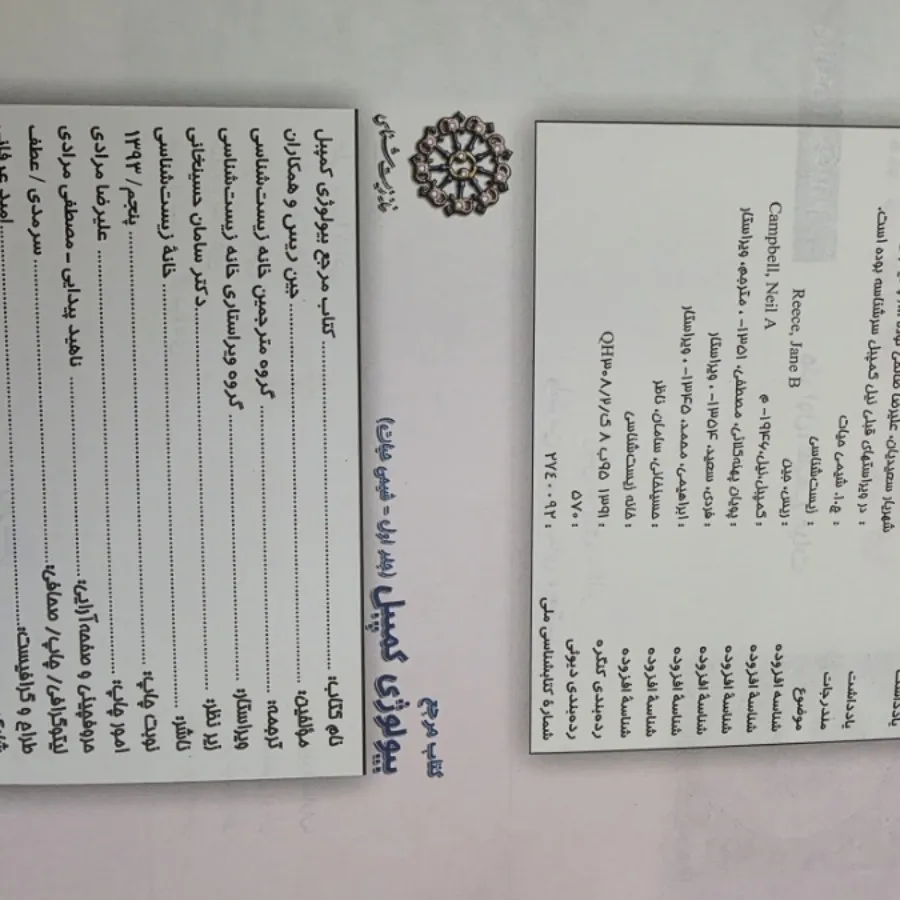 شهریار سعیدیان، علیرضا
: در ویراستهای قبلی نیل کمپبل سرشناسه بوده است.
یادداشت
مندرجات : ج.۱. شیمی حیات
موضوع : زیست‌شناسی
شناسه افزوده : ریس، جین
Reece, Jane B
شناسهٔ افزوده : کمپبل، نیل، ۱۹۴۶- م
Campbell, Neil A
شناسهٔ افزوده : پویان پهنه‌کلائی، مصطفی، ۱۳۵۱- ، مترجم، ویراستار
شناسهٔ افزوده : فردی، سعید، ۱۳۵۴- ، ویراستار
شناسهٔ افزوده : ابراهیمی، محمد، ۱۳۴۵- ، ویراستار
شناسهٔ افزوده : حسینخانی، سامان، ناظر
شناسهٔ افزوده : خانه زیست‌شناسی
رده‌بندی کنگره : ۱۳۹۱ ۹۵ب ۸ ک/۲/QH۳۰۸
رده‌بندی دیویی : ۵۷۰
شماره کتابشناسی ملی : ۲۷۴۰۰۹۲
خانه زیست شناسی
کتاب مرجع
بیولوژی کمپبل (جلد اول - شیمی حیات)
نام کتاب: کتاب مرجع بیولوژی کمپبل
مؤلفین: جین ریس و همکاران
ترجمه: گروه مترجمین خانه زیست‌شناسی
ویراستار: گروه ویراستاری خانه زیست‌شناسی
زیر نظر: دکتر سامان حسینخانی
ناشر: خانهٔ زیست‌شناسی
نوبت چاپ: پنجم/ ۱۳۹۳
امور چاپ: علیرضا مرادی
حروفچینی و صفحه‌آرایی: ناهید بیدایی - مصطفی مرادی
لیتوگرافی/ چاپ/ صحافی: سرمدی / عطف
طراح و گرافیست: امید